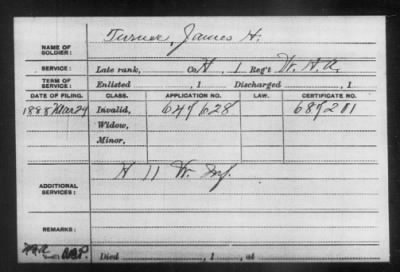 NAME OF SOLDIER: Turner, James H.
SERVICE: Late rank, Co. H, 1 Reg't Vt. H.A.
TERM OF SERVICE: Enlisted , 1 Discharged , 1
DATE OF FILING. CLASS. APPLICATION NO. LAW. CERTIFICATE NO.
1888 Mar 29 Invalid, 649628 689201
Widow,
Minor,
ADDITIONAL SERVICES: H 11 Vt. Inf.
REMARKS:
Died , 1 , at